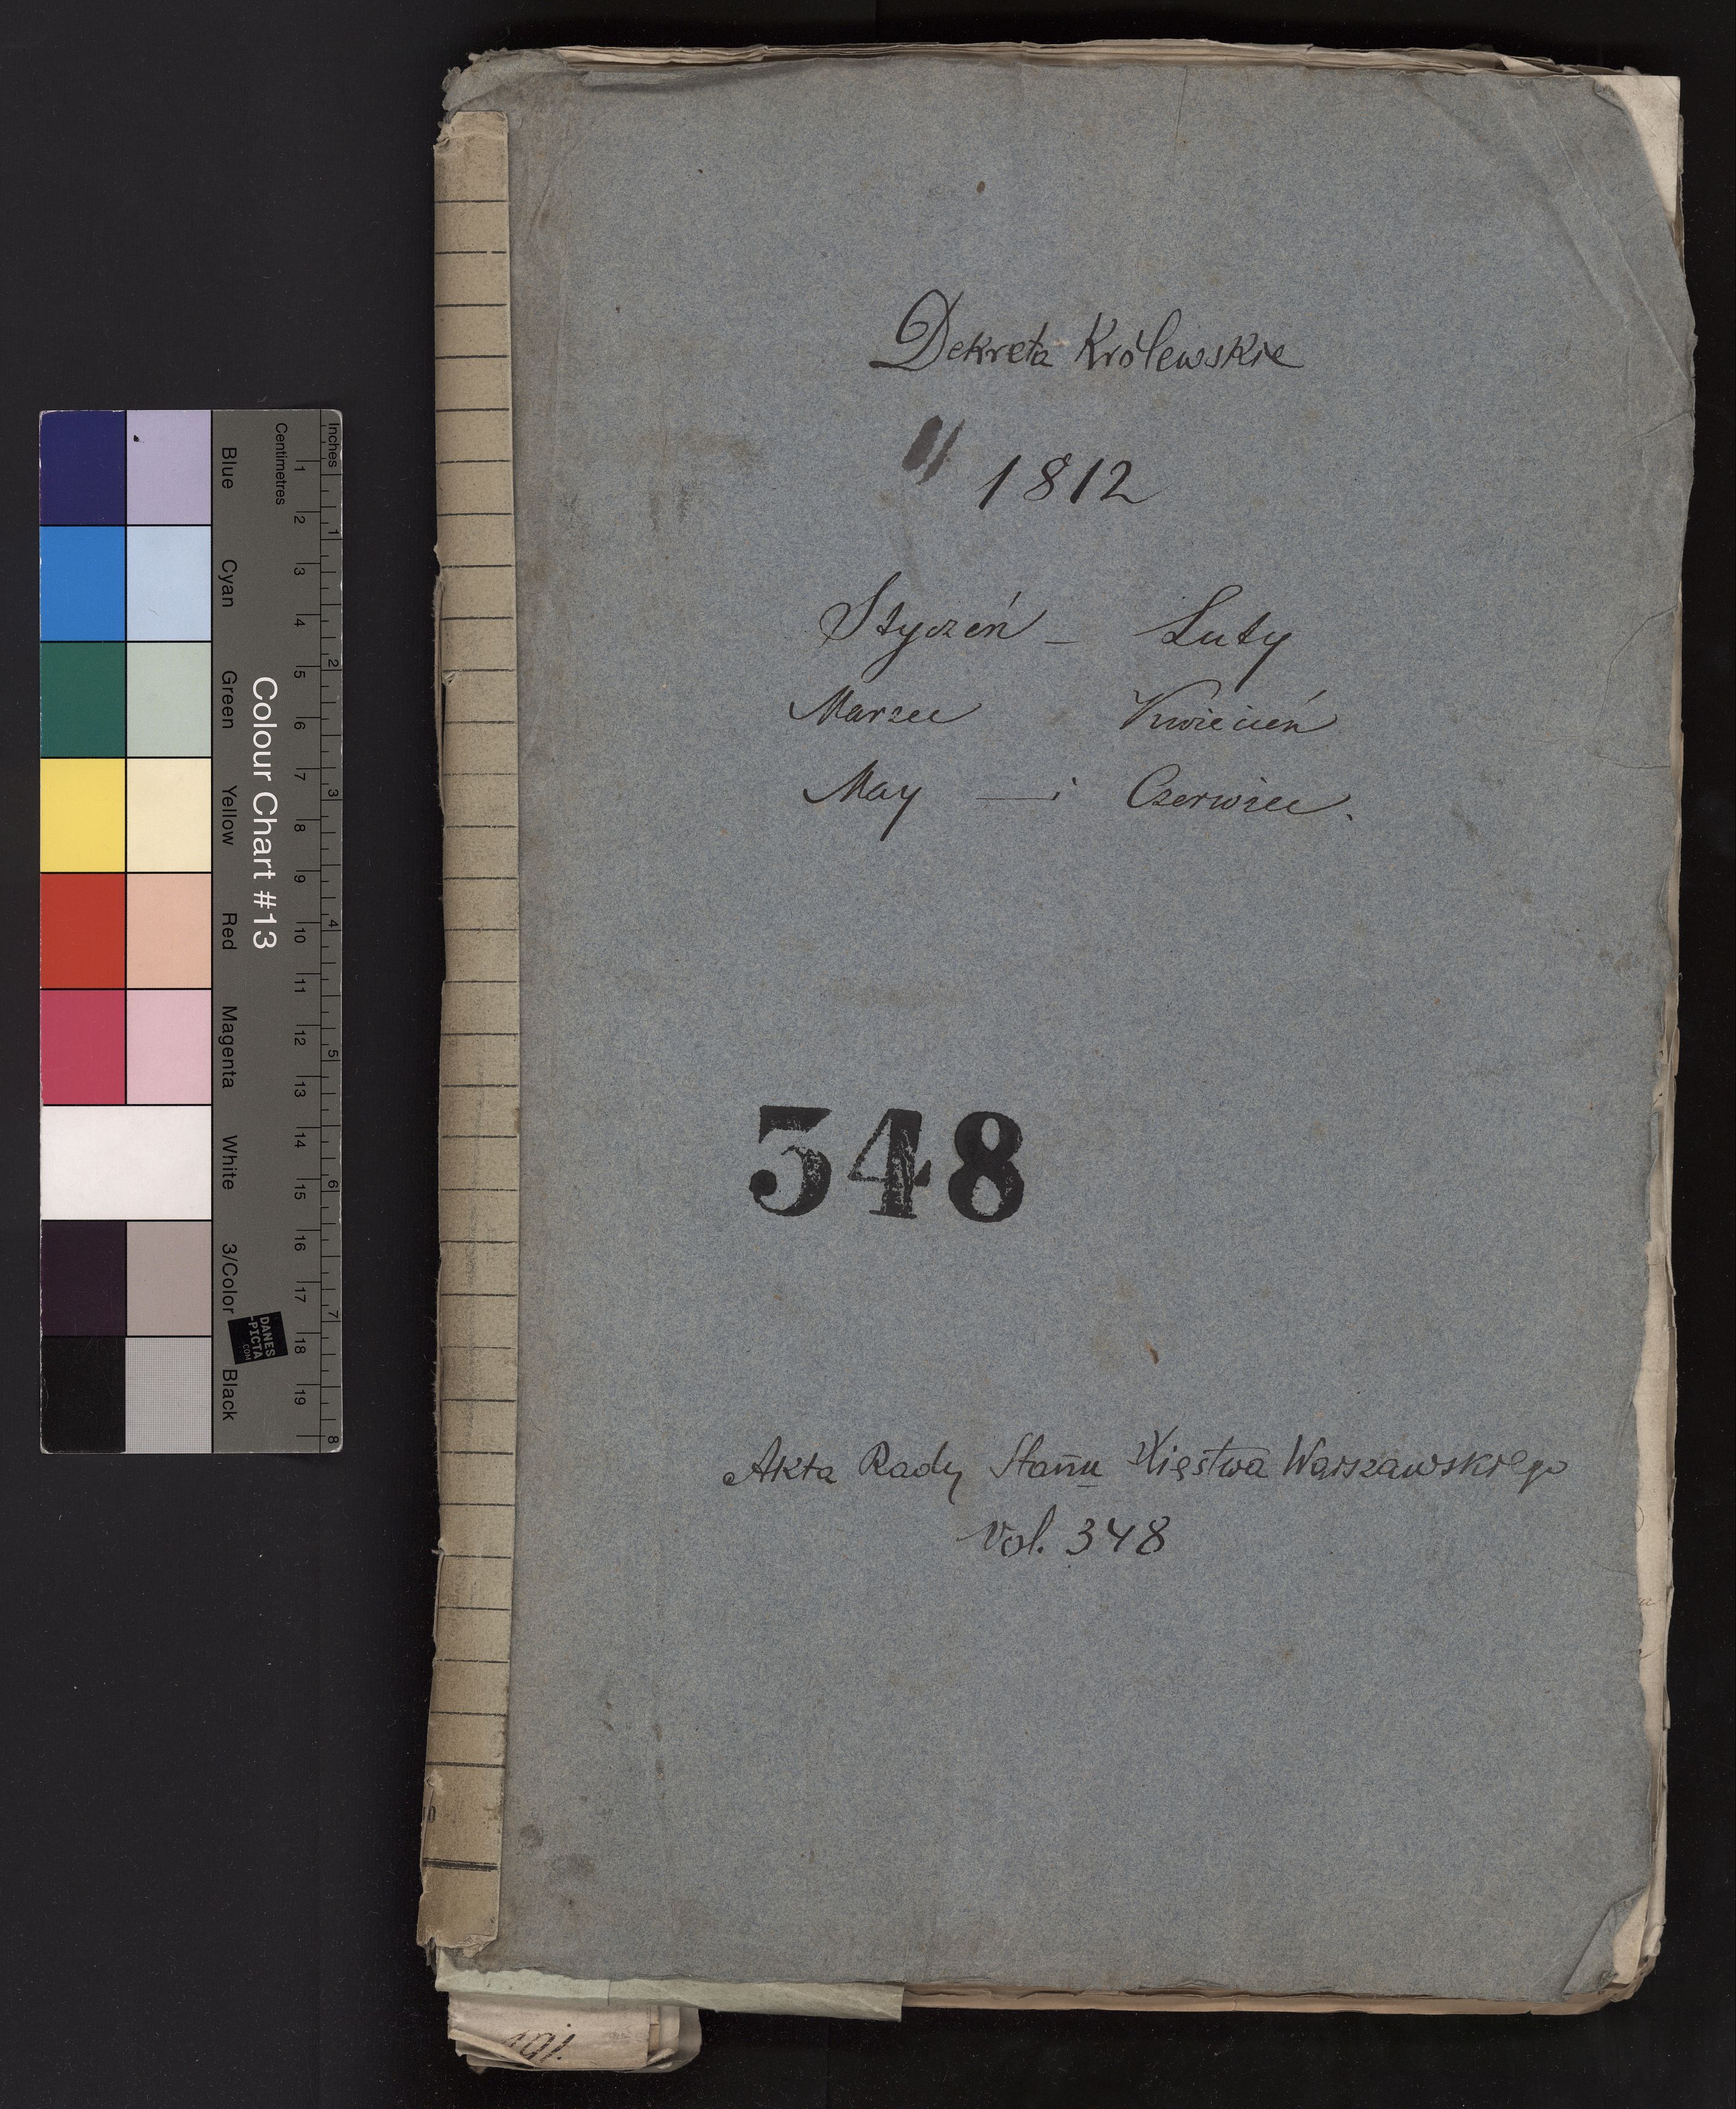 Dekreta Królewskie
1812
Styczeń – Luty
Marzec Kwiecień
May — i Czerwiec.
348
Akta Rady Stanu Xięstwa Warszawskiego
vol. 348
Colour Chart #13
Blue Cyan Green Yellow Red Magenta White 3/Color Black
Centimetres 1 2 3 4 5 6 7 8 9 10 11 12 13 14 15 16 17 18 19
Inches 1 2 3 4 5 6 7 8
DANES
-PICTA
.COM